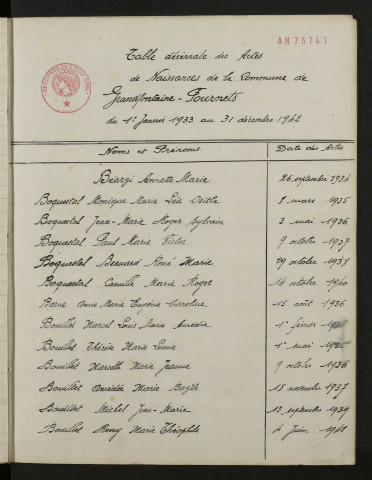 AN75741
Table décennale des Actes
de Naissances de la Commune de
Grandfontaine-Fournets
du 1er Janvier 1933 au 31 décembre 1942
Noms et Prénoms. Date des Actes
Béarzi Annette Marie 26 septembre 1934
Boquestal Monique Marie 8 mars 1935
Boquestal Jean-Marie Roger Sylvain 3 mai 1936
Boquestal Paul Marie Victor 9 octobre 1937
Boquestal Bernard René Marie 29 octobre
Boquestal Camille Marie Roger 16 octobre 1940
Anne Marie Eugénie Caroline 15 août 1936
Bouillet Marcel Louis Marie Amédée 1er février
Bouillet Thérèse Marie 1er mai
Bouillet Marcelle Marie Jeanne 9 octobre 1936
Bouillet Amédée Marie 18 novembre 1937
Bouillet Michel Jean-Marie 13 septembre 1939
Bouillet Rémy Marie Théophile 4 Juin 1941